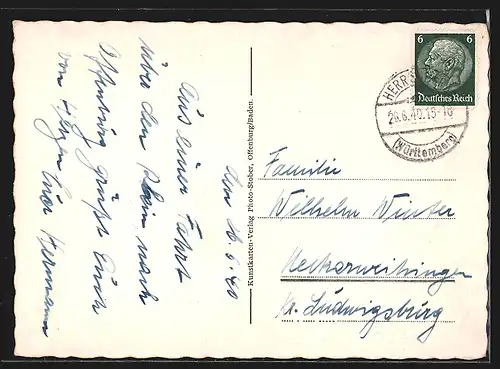 Den 26.6.40
Aus einer Fahrt
über den Rhein nach
Offenburg grüßt Euch
von Herzen Euer Hermann
Kunstkarten-Verlag Photo-Stober, Offenburg/Baden.
6 6
Deutsches Reich
26.6.40.15-16
(Württemberg)
Familie
Wilhelm Winter
Neckarweihingen
Kr. Ludwigsburg